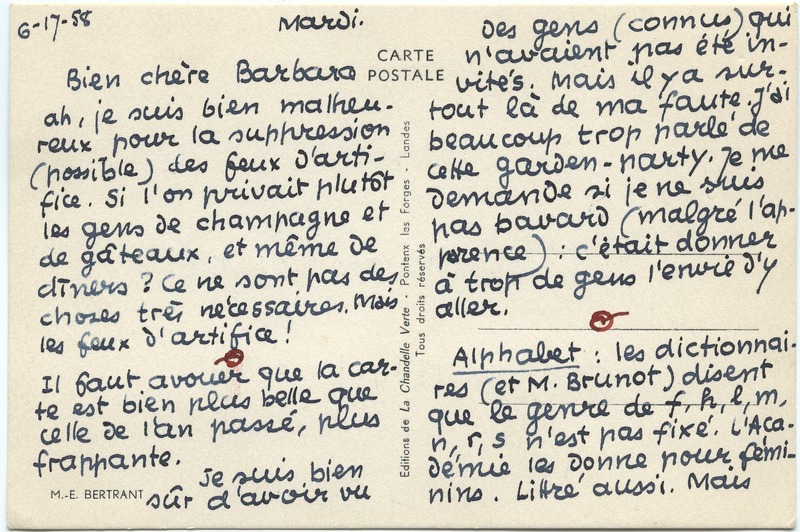 6-17-58
Mardi.
CARTE
POSTALE
Bien chère Barbara
ah, je suis bien malheu-
reux pour la suppression
(possible) des feux d'arti-
fice. Si l'on privait plutôt
les gens de champagne et
de gâteaux, et même de
dîners ? Ce ne sont pas des
choses très nécessaires. Mais
les feux d'artifice !
Il faut avouer que la car-
te est bien plus belle que
celle de l'an passé, plus
frappante.
Je suis bien
sûr d'avoir vu
M.-E. BERTRANT
Editions de La Chandelle Verte - Pontenx les Forges - Landes
Tous droits réservés
des gens (connus) qui
n'avaient pas été in-
vités. Mais il y a sur-
tout là de ma faute. J'ai
beaucoup trop parlé de
cette garden-party. Je me
demande si je ne suis
pas bavard (malgré l'ap-
prence) : c'était donner
à trop de gens l'envie d'y
aller.
Alphabet : les dictionnai-
res (et M. Brunot) disent
que le genre de f, h, l, m,
n, r, s n'est pas fixé. L'Aca-
démie les donne pour fémi-
nins. Littré aussi. Mais